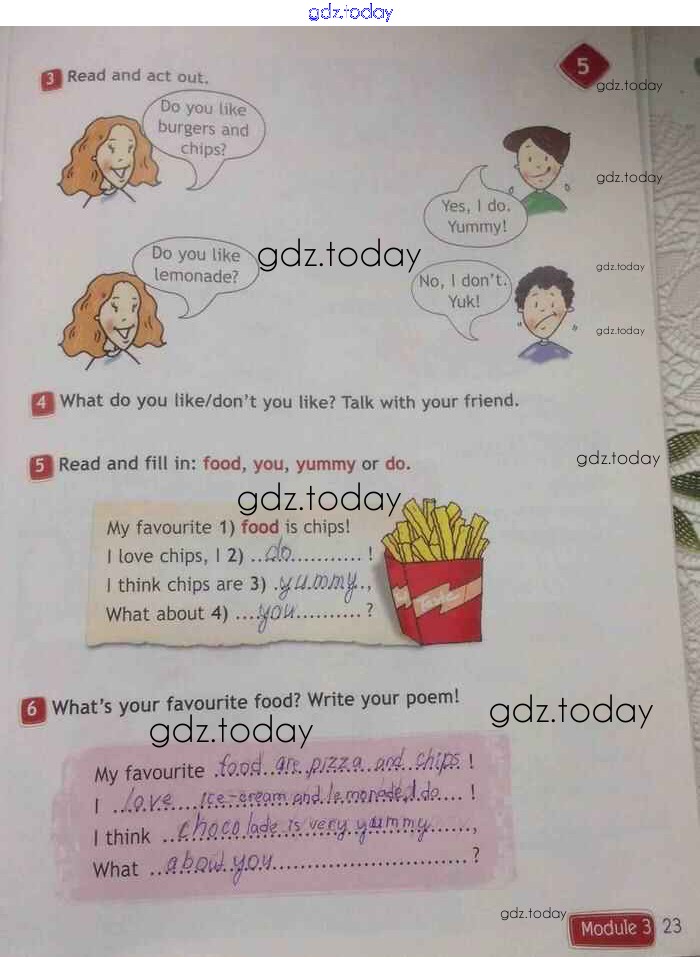 gdz.today
3 Read and act out.
5
gdz.today
Do you like
burgers and
chips?
gdz.today
Yes, I do.
Yummy!
Do you like
lemonade?
gdz.today
gdz.today
No, I don't.
Yuk!
gdz.today
4 What do you like/don't you like? Talk with your friend.
5 Read and fill in: food, you, yummy or do.
gdz.today
gdz.today
My favourite 1) food is chips!
I love chips, I 2) ..do............ !
I think chips are 3) .yummy..,
What about 4) ....you........... ?
Taste
6 What's your favourite food? Write your poem!
gdz.today
gdz.today
My favourite .food are pizza and chips !
I ..love ice-cream and lemonade, I do.... !
I think ..chocolade is very yummy......,
What ..about you.............................. ?
gdz.today
Module 3 23